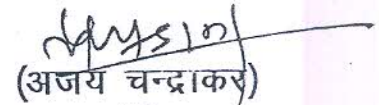 (अजय चन्द्राकर)